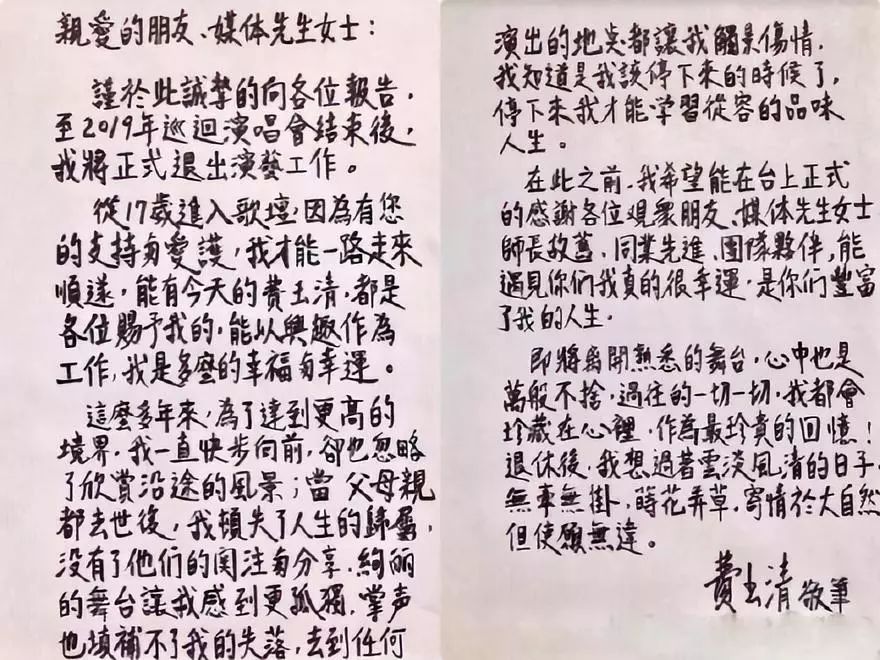 親愛的朋友、媒体先生女士：
謹於此誠摯的向各位報告，
至2019年巡迴演唱會結束後，
我將正式退出演藝工作。
從17歲進入歌壇，因為有您
的支持與愛護，我才能一路走來
順遂，能有今天的費玉清，都是
各位賜予我的，能以興趣作為
工作，我是多麼的幸福與幸運。
這麼多年來，為了達到更高的
境界，我一直快步向前，卻也忽略
了欣賞沿途的風景；當父母親
都去世後，我頓失了人生的歸屬，
没有了他們的関注與分享，絢丽
的舞台讓我感到更孤獨，掌声
也填補不了我的失落，去到任何
演出的地点都讓我觸景傷情，
我知道是我該停下來的時候了，
停下來我才能学習從容的品味
人生。
在此之前，我希望能在台上正式
的感謝各位观眾朋友、媒体先生女士
師長故舊、同業先進、團隊夥伴，能
遇見你們我真的很幸運，是你們豐富
了我的人生．
即將离開熟悉的舞台，心中也是
萬般不捨，過往的一切一切，我都會
珍藏在心裡，作為最珍貴的回憶！
退休後，我想過著雲淡風清的日子，
無牽無掛，蒔花弄草，寄情於大自然
但使願無違。
費玉清 敬筆